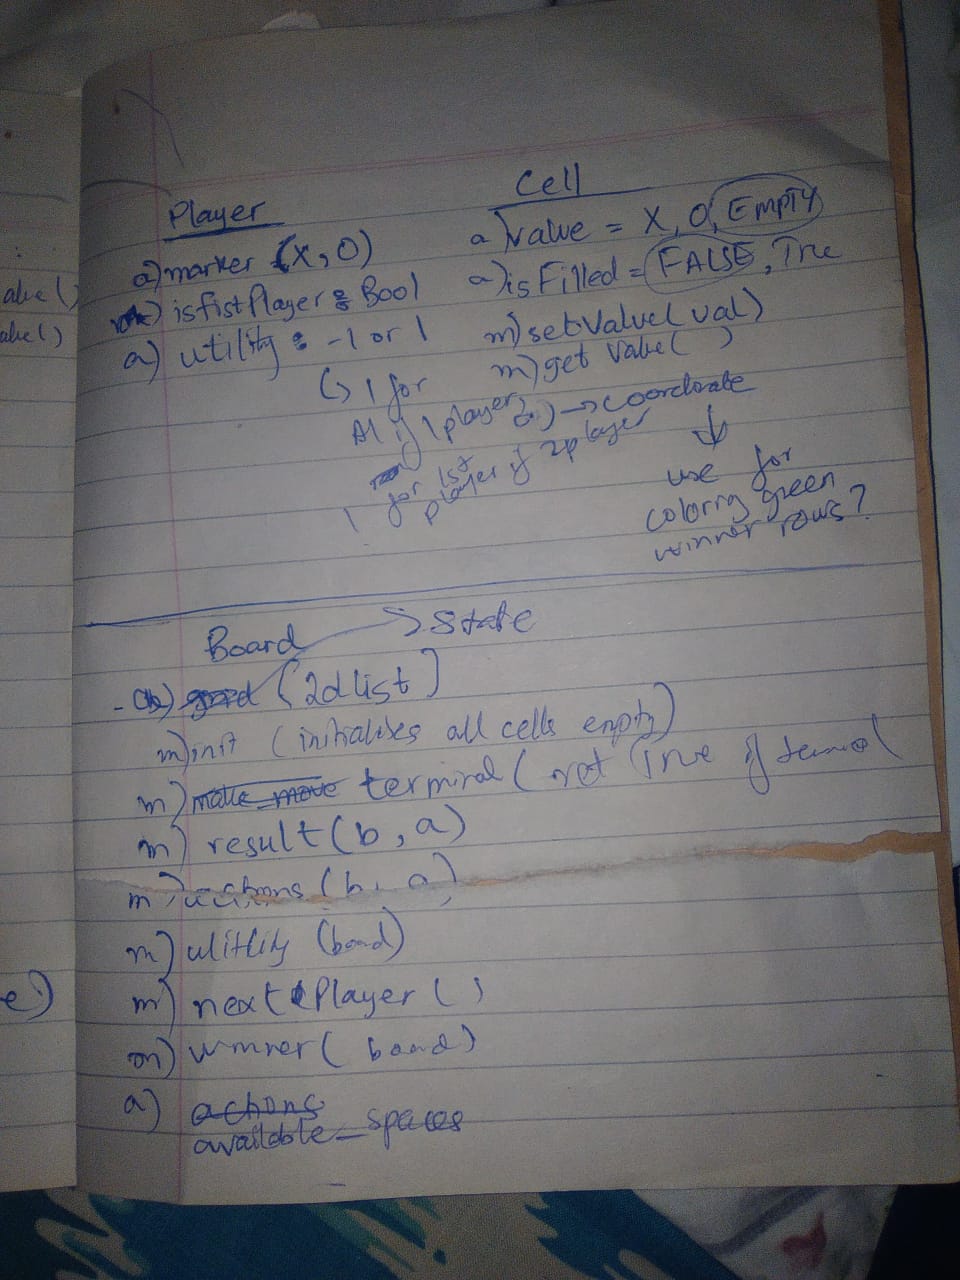 Player
a) marker (X, O)
a) isfistPlayer : Bool
a) utility : -1 or 1
↳ 1 for
AI if 1player,
1 for 1st
player if 2player
Cell
a) value = X, O, EMPTY
a) isFilled = FALSE, True
m) setValue(val)
m) get Value( )
a) → coordinate
↓
use for
coloring green
winner rows?
Board → State
a) (2dlist]
m) init (initialises all cells empty)
m) make move terminal ( ret True if
m) result(b, a)
m) actions (b, a)
m) utitlity (board)
m) next Player ( )
m) winner( board)
a) actions
available_spaces
alue(
alue()
e)